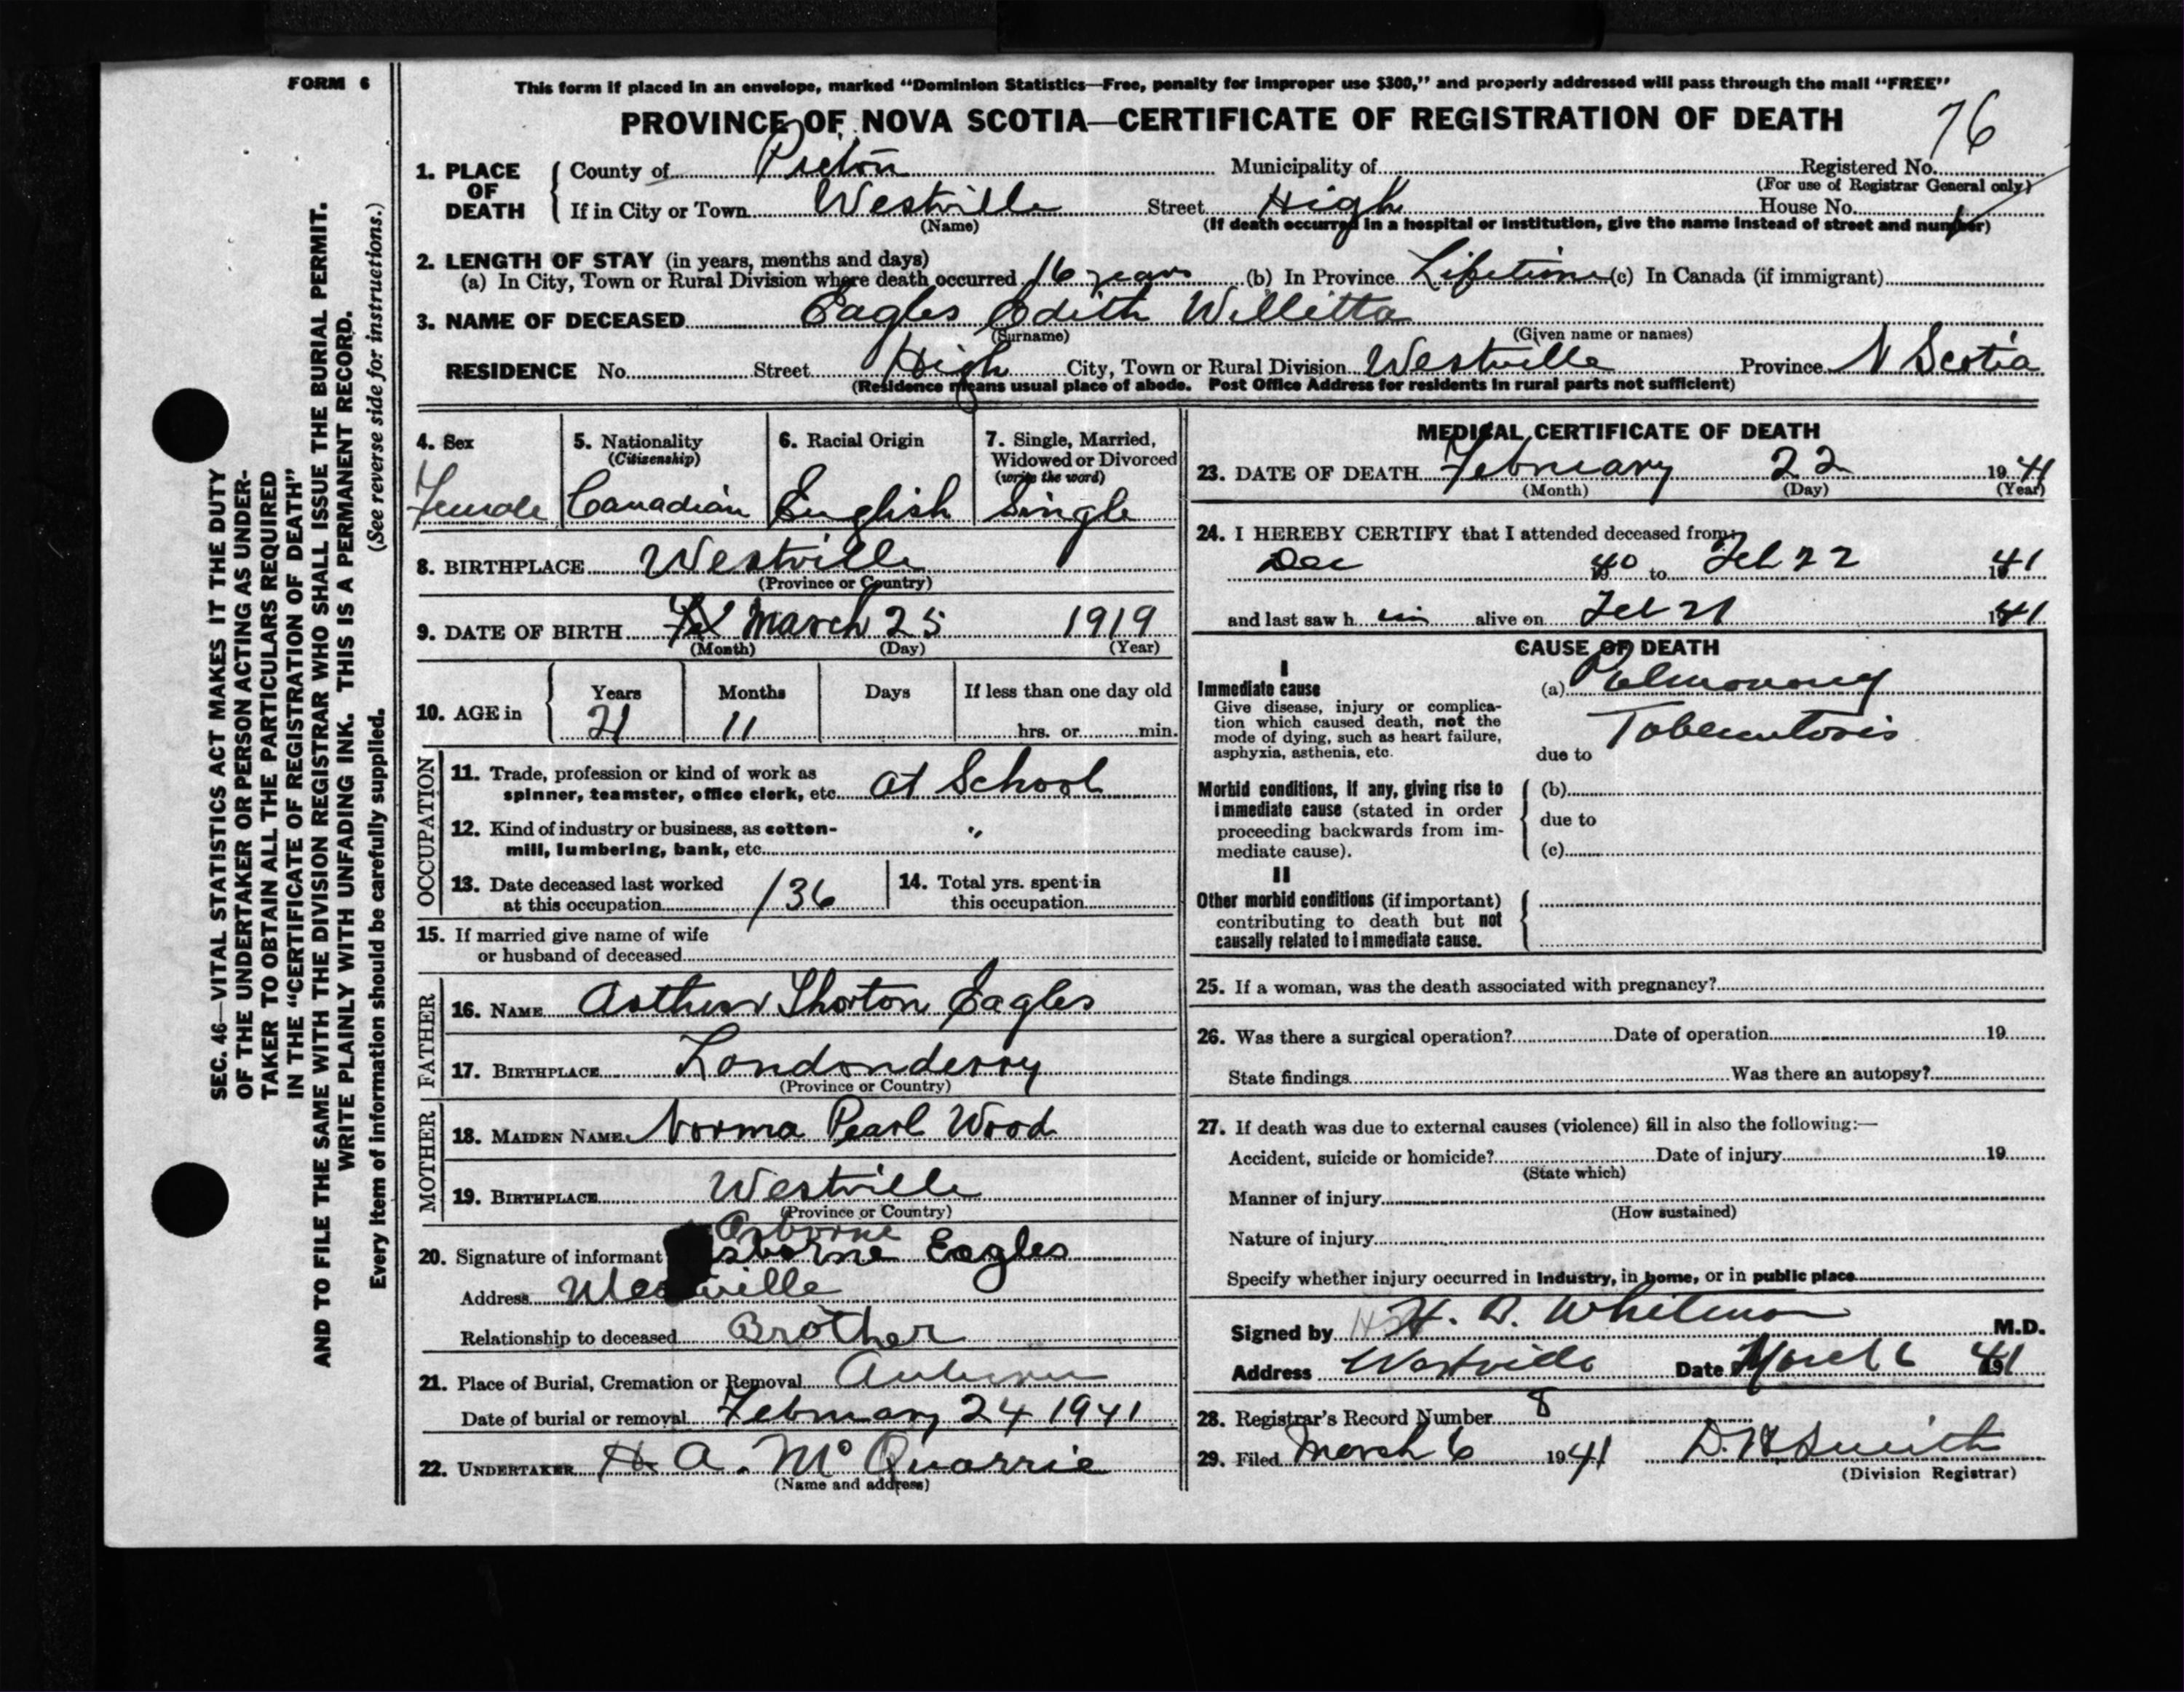 FORM 6
This form if placed in an envelope, marked "Dominion Statistics—Free, penalty for improper use $300," and properly addressed will pass through the mail "FREE"
PROVINCE OF NOVA SCOTIA—CERTIFICATE OF REGISTRATION OF DEATH
76
1. PLACE OF DEATH { County of Pictou Municipality of Registered No.
(For use of Registrar General only)
If in City or Town Westville Street High House No.
(Name) (If death occurred in a hospital or institution, give the name instead of street and number)
2. LENGTH OF STAY (in years, months and days)
(a) In City, Town or Rural Division where death occurred 16 years (b) In Province Lifetime (c) In Canada (if immigrant)
3. NAME OF DECEASED Eagles Edith Willitta
(Surname) (Given name or names)
RESIDENCE No. Street High City, Town or Rural Division Westville Province N Scotia
(Residence means usual place of abode. Post Office Address for residents in rural parts not sufficient)
4. Sex
Female
5. Nationality
(Citizenship)
Canadian
6. Racial Origin
English
7. Single, Married,
Widowed or Divorced
(write the word)
Single
8. BIRTHPLACE Westville
(Province or Country)
9. DATE OF BIRTH March 25 1919
(Month) (Day) (Year)
10. AGE in { Years Months Days If less than one day old
21 11 hrs. or min.
OCCUPATION
11. Trade, profession or kind of work as
spinner, teamster, office clerk, etc. at School
12. Kind of industry or business, as cotton-
mill, lumbering, bank, etc. "
13. Date deceased last worked
at this occupation /36
14. Total yrs. spent in
this occupation
15. If married give name of wife
or husband of deceased
FATHER
16. NAME Arthur Thorton Eagles
17. BIRTHPLACE Londonderry
(Province or Country)
MOTHER
18. MAIDEN NAME Norma Pearl Wood
19. BIRTHPLACE Westville
(Province or Country)
Osborne
20. Signature of informant sborne Eagles
Address Westville
Relationship to deceased Brother
21. Place of Burial, Cremation or Removal Auburn
Date of burial or removal February 24 1941
22. UNDERTAKER A. McQuarrie
(Name and address)
MEDICAL CERTIFICATE OF DEATH
23. DATE OF DEATH February 22 1941
(Month) (Day) (Year)
24. I HEREBY CERTIFY that I attended deceased from:
Dec 1940 to Feb 22 1941
and last saw h im alive on Feb 21 1941
CAUSE OF DEATH
I
Immediate cause
Give disease, injury or complica-
tion which caused death, not the
mode of dying, such as heart failure,
asphyxia, asthenia, etc.
(a) Pulmonary
Tuberculosis
due to
Morbid conditions, if any, giving rise to
immediate cause (stated in order
proceeding backwards from im-
mediate cause).
(b)
due to
(c)
II
Other morbid conditions (if important)
contributing to death but not
causally related to immediate cause.
25. If a woman, was the death associated with pregnancy?
26. Was there a surgical operation? Date of operation 19
State findings Was there an autopsy?
27. If death was due to external causes (violence) fill in also the following:—
Accident, suicide or homicide? Date of injury 19
(State which)
Manner of injury
(How sustained)
Nature of injury
Specify whether injury occurred in industry, in home, or in public place
Signed by H. D. Whitman M.D.
Address Westville Date March 6 1941
28. Registrar's Record Number 8
29. Filed March 6 1941 D. H Smith
(Division Registrar)
SEC. 46—VITAL STATISTICS ACT MAKES IT THE DUTY
OF THE UNDERTAKER OR PERSON ACTING AS UNDER-
TAKER TO OBTAIN ALL THE PARTICULARS REQUIRED
IN THE "CERTIFICATE OF REGISTRATION OF DEATH"
AND TO FILE THE SAME WITH THE DIVISION REGISTRAR WHO SHALL ISSUE THE BURIAL PERMIT.
WRITE PLAINLY WITH UNFADING INK. THIS IS A PERMANENT RECORD.
Every item of information should be carefully supplied. (See reverse side for instructions.)